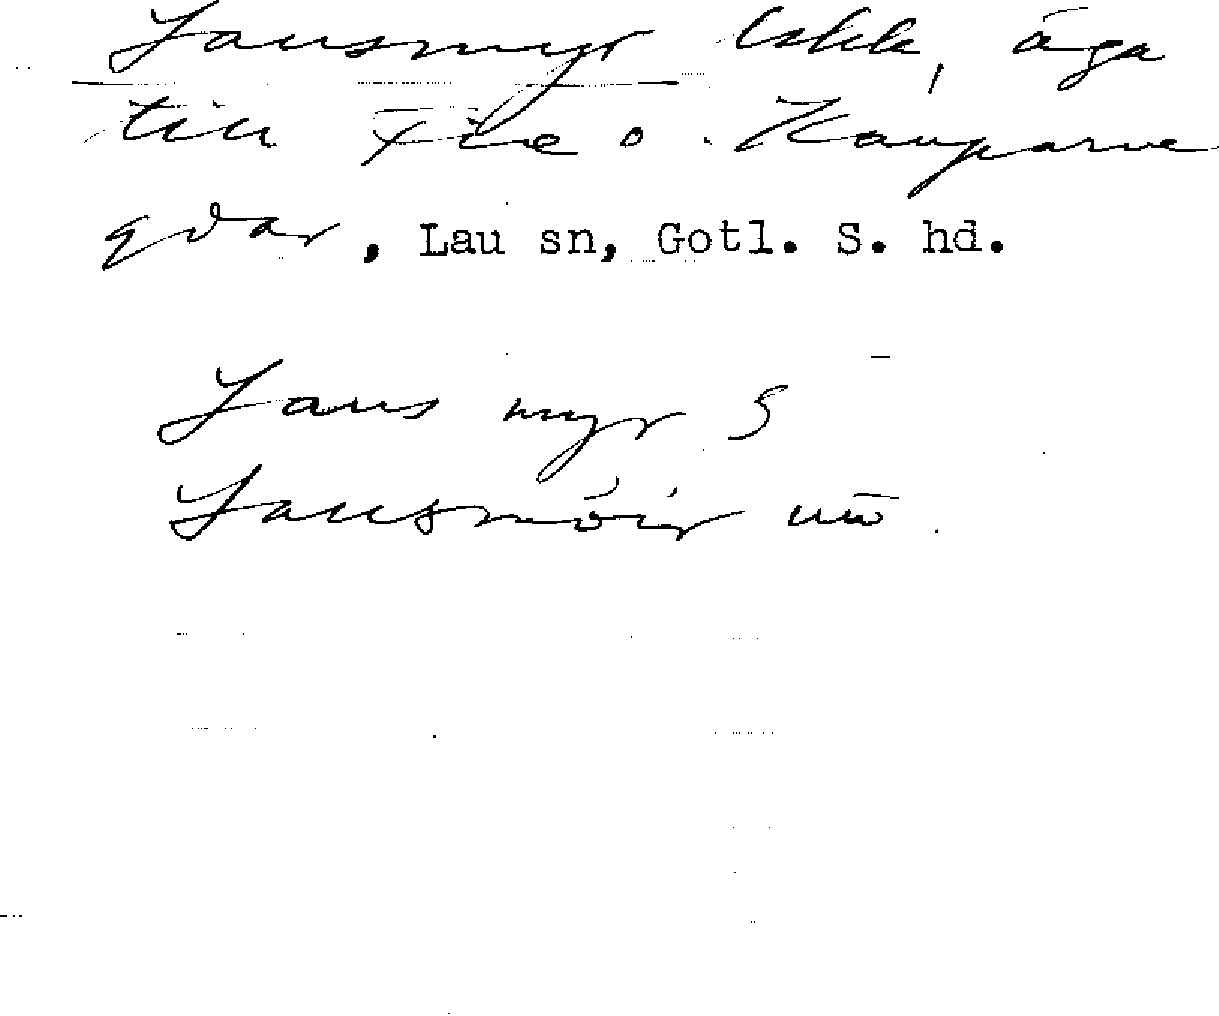 Lausmyr lskk, äga
till Fie o. Kauparve
gdar, Lau sn, Gotl. S. hd.
Laus myr
Lausmöir